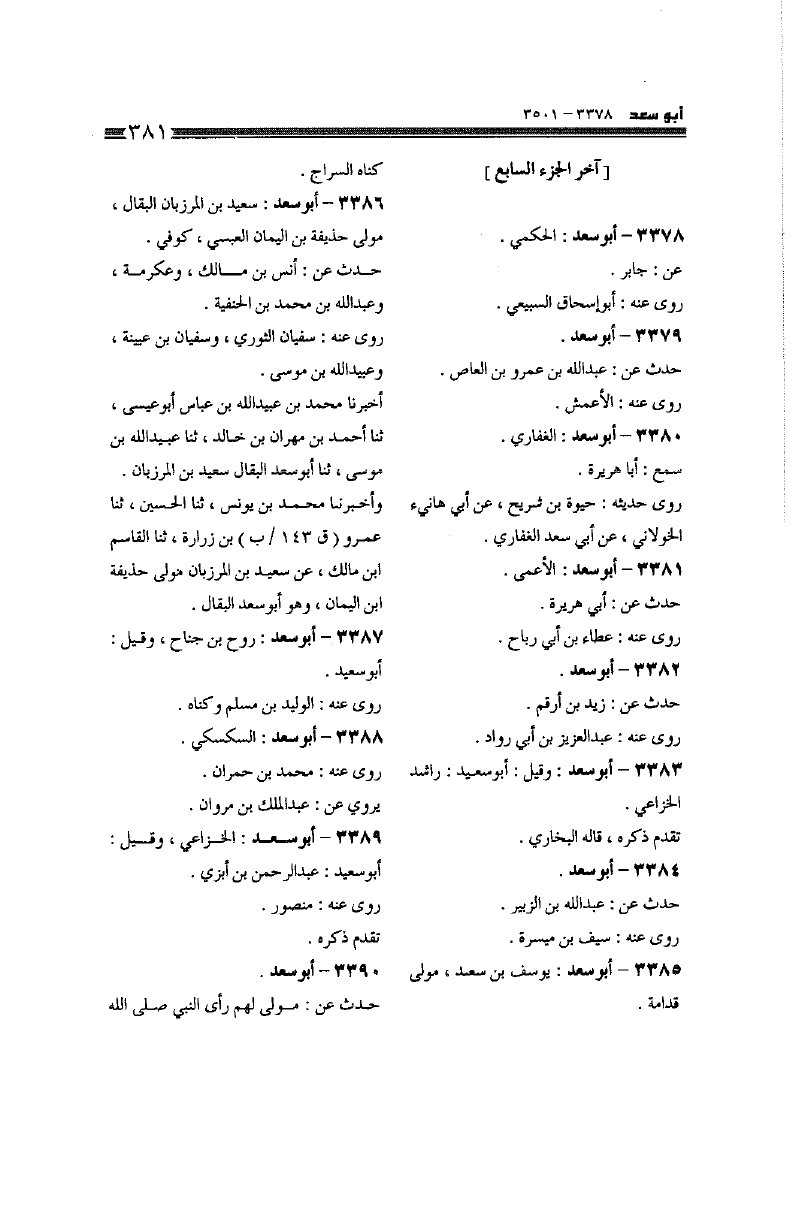 أبو سعد ٣٣٧٨ – ٣٥٠١
٣٨١
[ آخر الجزء السابع ]
٣٣٧٨ – أبوسعد : الحكمي .
عن : جابر .
روى عنه : أبوإسحاق السبيعي .
٣٣٧٩ – أبوسعد .
حدث عن : عبدالله بن عمرو بن العاص .
روى عنه : الأعمش .
٣٣٨٠ – أبوسعد : الغفاري .
سمع : أبا هريرة .
روى حديثه : حيوة بن شريح ، عن أبي هانيء
الخولاني ، عن أبي سعد الغفاري .
٣٣٨١ – أبوسعد : الأعمى .
حدث عن : أبي هريرة .
روى عنه : عطاء بن أبي رباح .
٣٣٨٢ – أبوسعد .
حدث عن : زيد بن أرقم .
روى عنه : عبدالعزيز بن أبي رواد .
٣٣٨٣ – أبوسعد : وقيل : أبوسعيد : راشد
الخزاعي .
تقدم ذكره ، قاله البخاري .
٣٣٨٤ – أبوسعد .
حدث عن : عبدالله بن الزبير .
روى عنه : سيف بن ميسرة .
٣٣٨٥ – أبوسعد : يوسف بن سعد ، مولى
قدامة .
كناه السراج .
٣٣٨٦ – أبوسعد : سعيد بن المرزبان البقال ،
مولى حذيفة بن اليمان العبسي ، كوفي .
حدث عن : أنس بن مالك ، وعكرمة ،
وعبدالله بن محمد بن الحنفية .
روى عنه : سفيان الثوري ، وسفيان بن عيينة ،
وعبيدالله بن موسى .
أخبرنا محمد بن عبيدالله بن عباس أبوعيسى ،
ثنا أحمد بن مهران بن خالد ، ثنا عبيدالله بن
موسى ، ثنا أبوسعد البقال سعيد بن المرزبان .
وأخبرنا محمد بن يونس ، ثنا الحسين ، ثنا
عمرو ( ق ١٤٣ / ب ) بن زرارة ، ثنا القاسم
ابن مالك ، عن سعيد بن المرزبان مولى حذيفة
ابن اليمان ، وهو أبوسعد البقال .
٣٣٨٧ – أبوسعد : روح بن جناح ، وقيل :
أبوسعيد .
روى عنه : الوليد بن مسلم وكناه .
٣٣٨٨ – أبوسعد : السكسكي .
روى عنه : محمد بن حمران .
يروي عن : عبدالملك بن مروان .
٣٣٨٩ – أبوسعد : الخزاعي ، وقيل :
أبوسعيد : عبدالرحمن بن أبزي .
روى عنه : منصور .
تقدم ذكره .
٣٣٩٠ – أبوسعد .
حدث عن : مولى لهم رأى النبي صلى الله